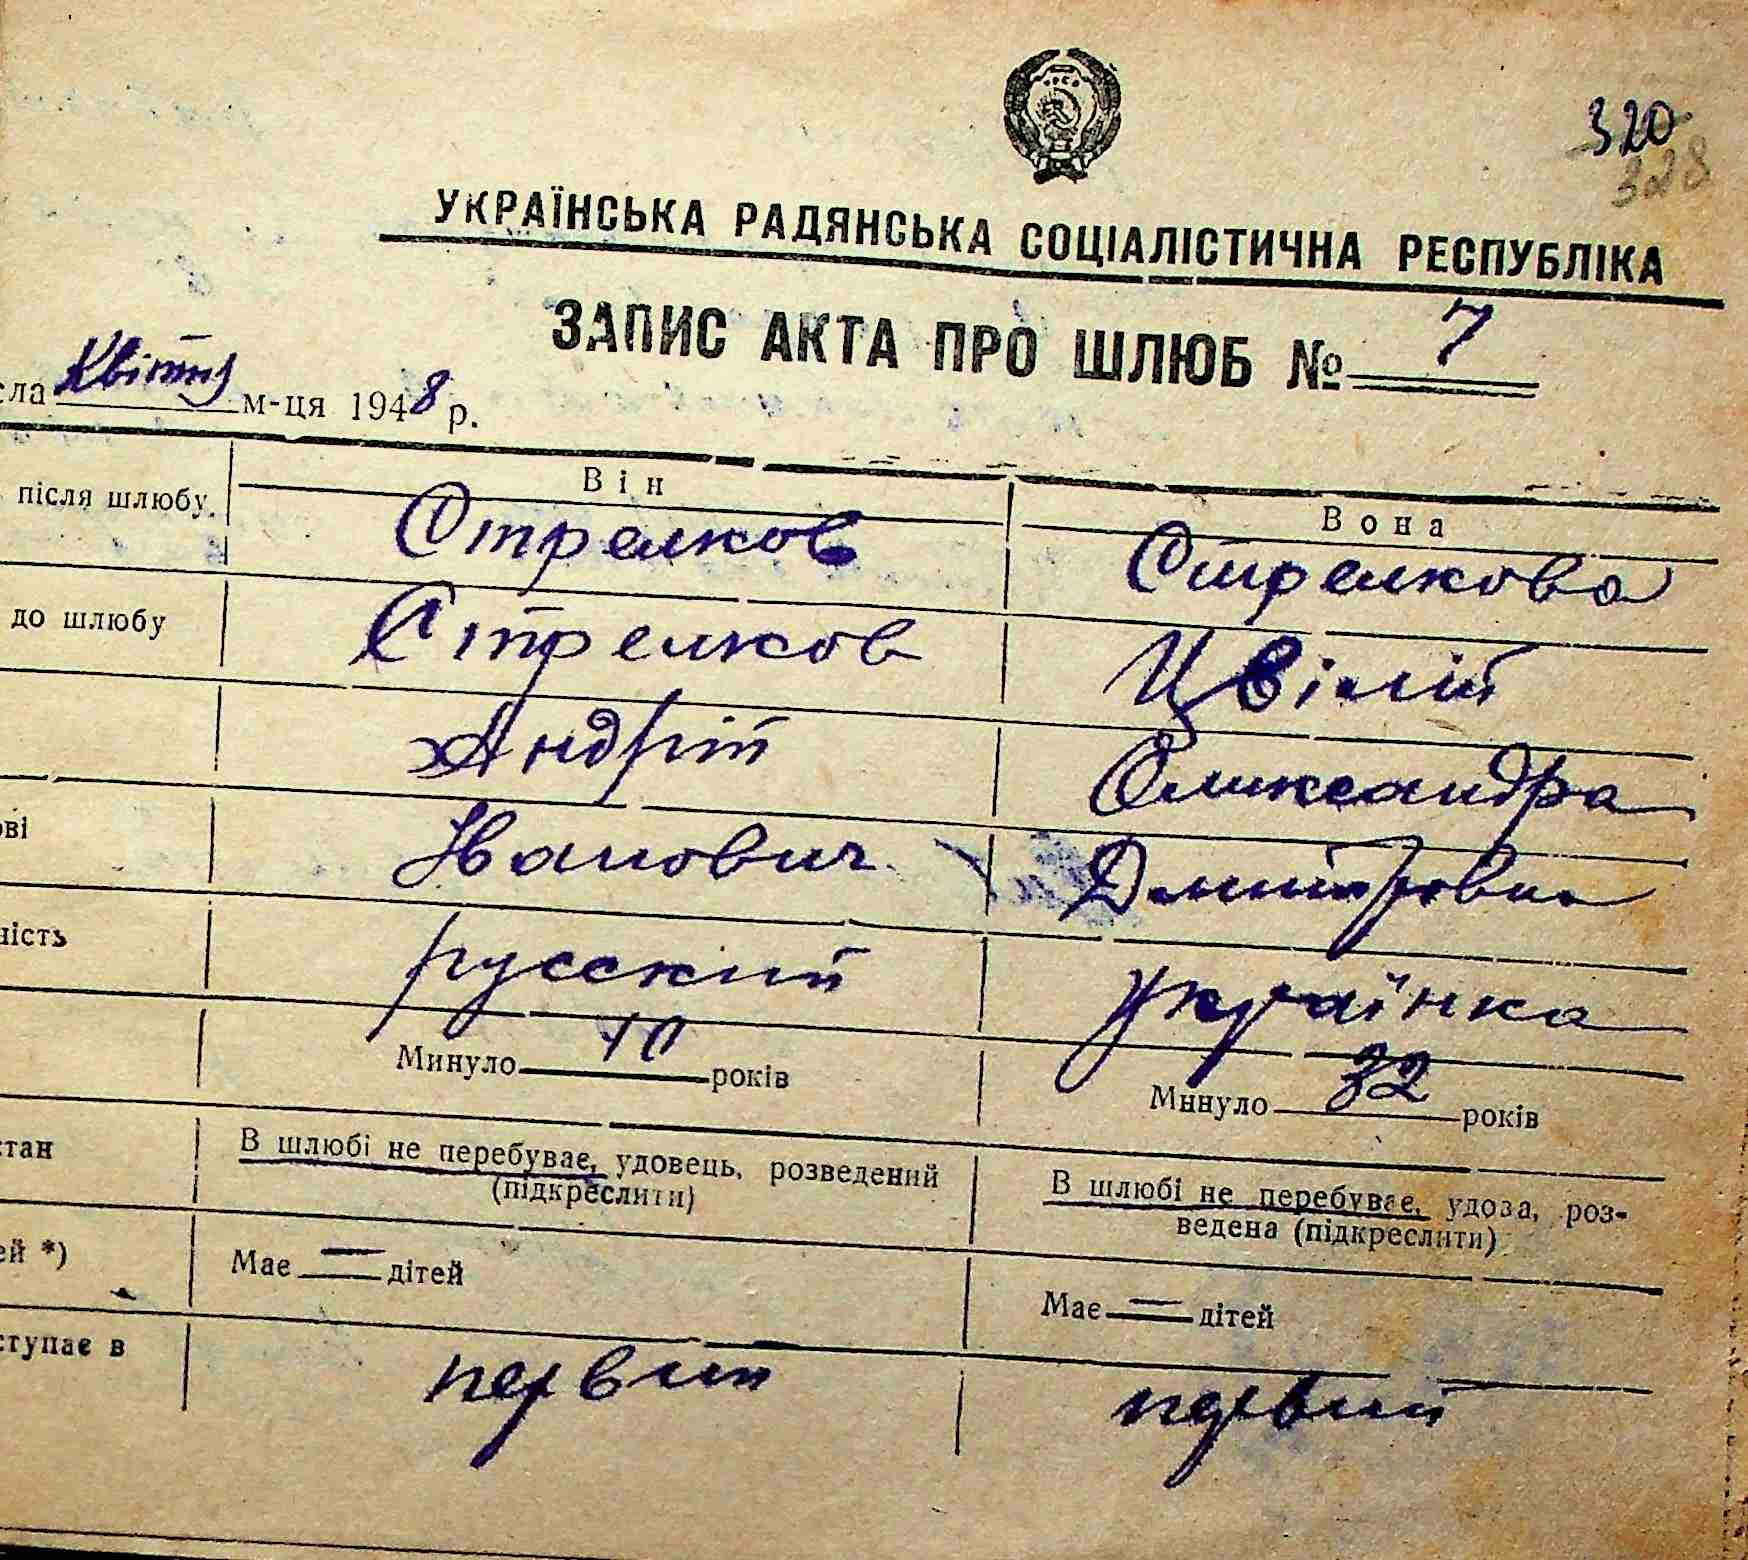 320
328
УКРАЇНСЬКА РАДЯНСЬКА СОЦІАЛІСТИЧНА РЕСПУБЛІКА
ЗАПИС АКТА ПРО ШЛЮБ № 7
сла Квітня м-ця 1948 р.
Він Вона
після шлюбу. Стрелков Стрелкова
до шлюбу Стрелков Цвілій
Андрій Олександра
ові Иванович Дмитровна
ність русский українка
Минуло 40 років Минуло 32 років
стан В шлюбі не перебуває, удовець, розведений В шлюбі не перебуває, удова, роз-
(підкреслити) ведена (підкреслити)
ей *) Має — дітей Має — дітей
ступає в первий первий